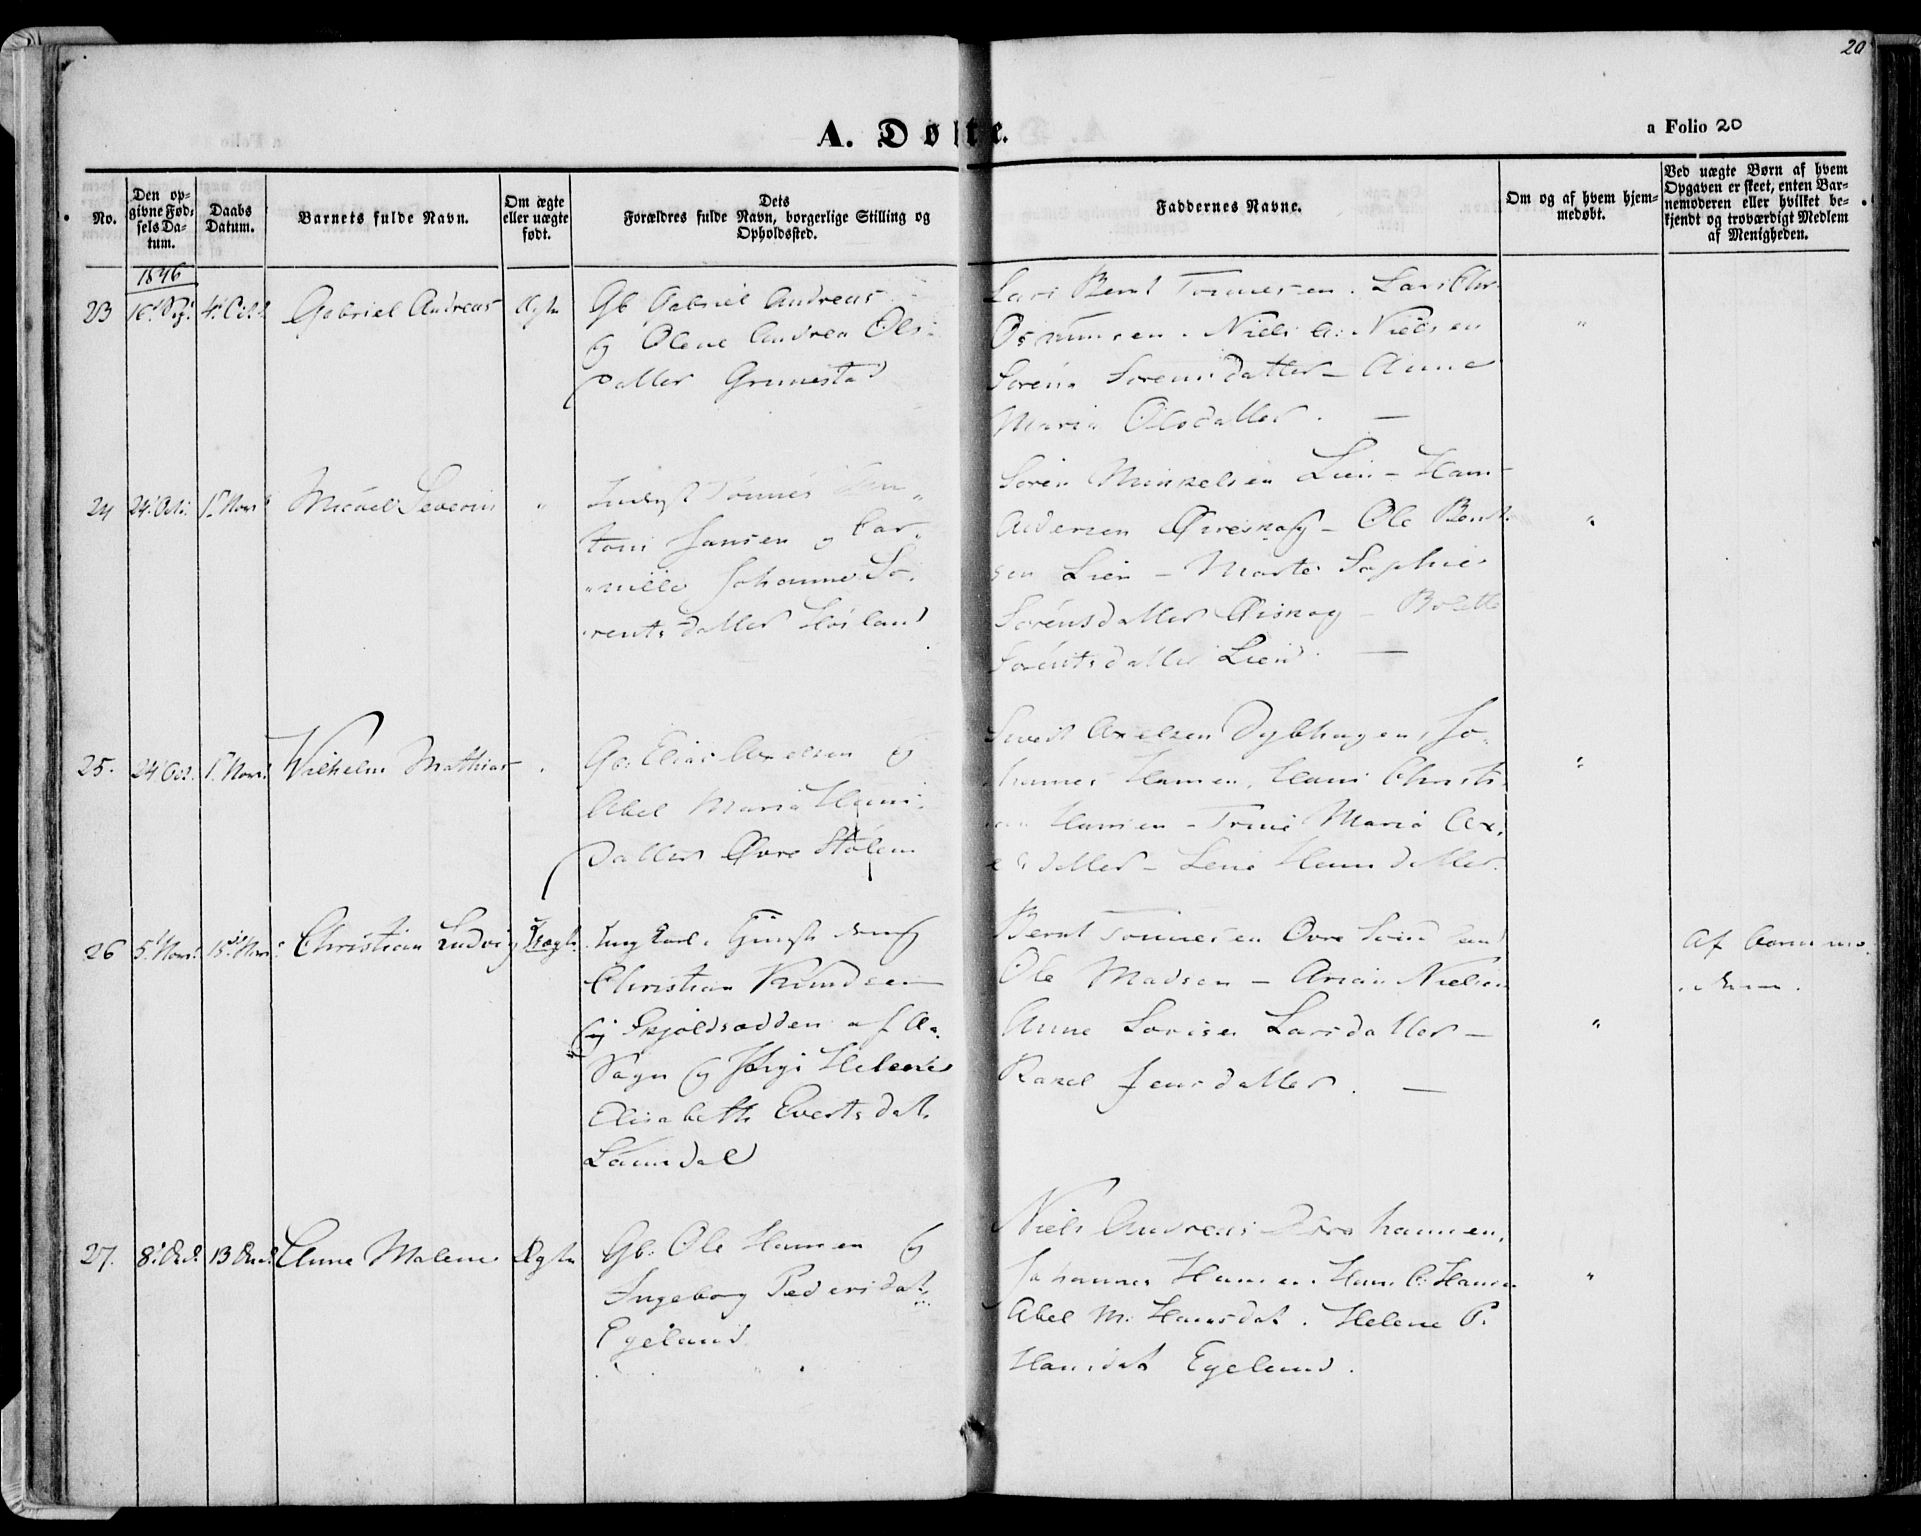 20
A. Døbte.
a Folio 20
No.
Den opgivne Fødsels Datum.
Daabs Datum.
Barnets fulde Navn.
Om ægte eller uægte født.
Dets Forældres fulde Navn, borgerlige Stilling og Opholdssted.
Faddernes Navne.
Om og af hvem hjemmedøbt.
Ved uægte Børn af hvem Opgaven er skeet, enten Barnemoderen eller hvilket bekjendt og troværdigt Medlem af Menigheden.
1846
23 16 Sep. 4 Oct. Gabriel Andreas Ægte
Gb. Gabriel Andreas
og Olene Andrea Ols-
datter Grunestad
Lars Bernt Tonnesen. Lars Chr.
Osmunsen. Niels A. Nielsen
Sorensdatter - Anne
Maria Olsdatter. -
24 24 Oct. 1 Nov. Micael Severin "
Tonnes An-
toni Jansen og
Johanne So-
rentsdatter
Soren Minkelsen Lien - Hans
Andersen - Ole Bent-
sen Lien - Marte Sophie
Sorensdatter - Bolette
Sorentsdatter Lien -
25. 24 Oct. 1 Nov. Wilhelm Mathias
Gb. Elias Axelsen og
Abel Maria Hans-
datter Øvre Stølen
Axelsen Dybhagen, Jo-
hannes Hansen, Hans Christi-
an Hansen - Trine Maria Ax-
elsdatter - Lene Hansdatter.
26 5 Nov. 15 Nov. Christian Ludvig Uægte
Ung Karl,
Christian Knudsen
Skjoldsodden af
Sogn og Helene
Elisabeth Evertsdat.
Bernt Tonnesen Øvre
Ole Madsen - Arian Nielsen
Anne Lovise Larsdatter -
Rakel Jensdatter. -
Af Barnemo-
deren.
27. 8 Dec. 13 Dec. Anne Malene Ægte
Gb. Ole Hansen og
Ingeborg Pedersdat.
Egeland
Niels Andreas
Johannes Hansen. Hans C. Hansen
Abel M. Hansdat. Helene P.
Hansdat Egeland.